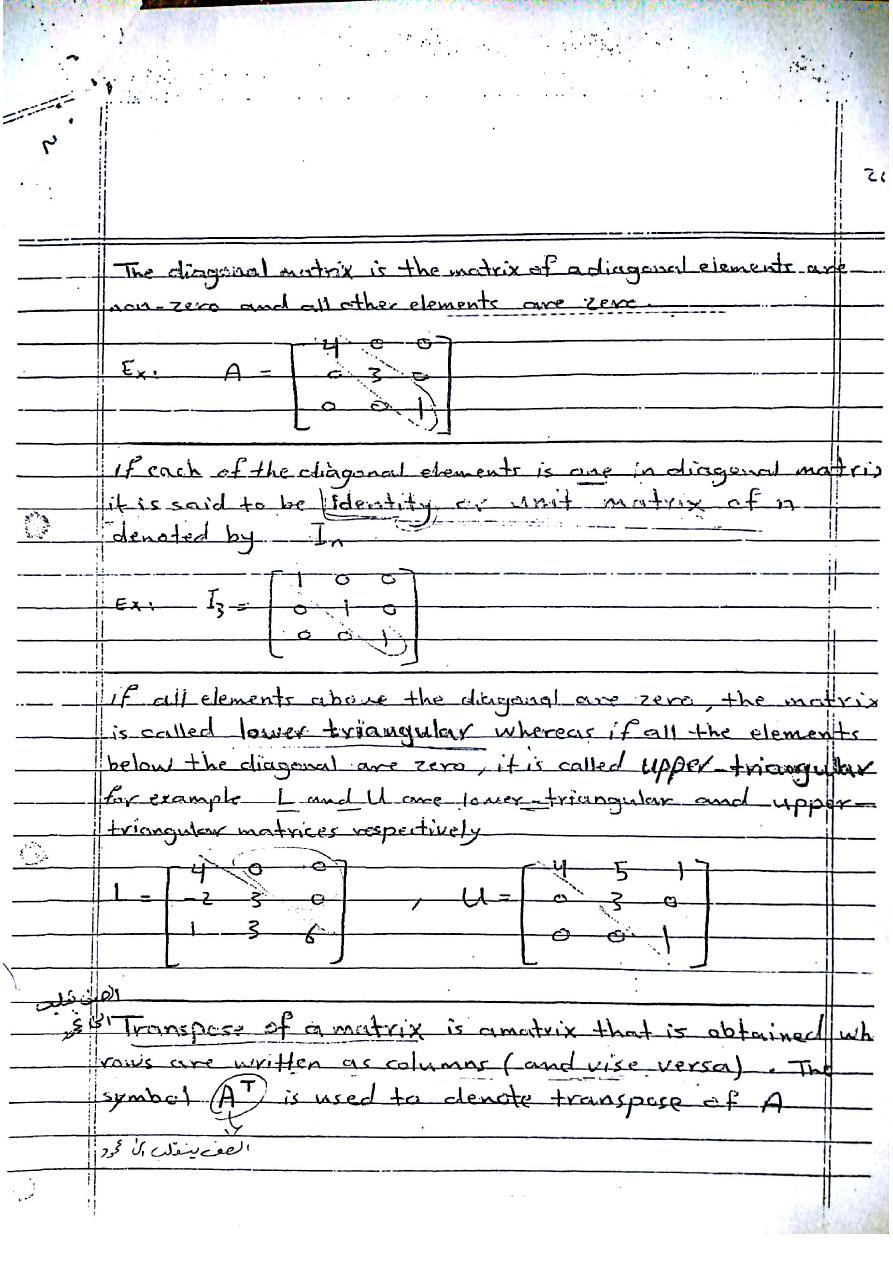 The diagonal matrix is the matrix of a diagonal elements are
non-zero and all other elements are zero.
Ex: A = [ 4 0 0
0 3 0
0 0 1 ]
if each of the diagonal elements is one in diagonal matrix
it is said to be identity or unit matrix of n
denoted by In
Ex: I3 = [ 1 0 0
0 1 0
0 0 1 ]
if all elements above the diagonal are zero, the matrix
is called lower triangular whereas if all the elements
below the diagonal are zero, it is called upper-triangular
for example L and U are lower-triangular and upper-
triangular matrices respectively
L = [ 4 0 0
-2 3 0
1 3 6 ] , U = [ 4 5 1
0 3 0
0 0 1 ]
الصف تقلب
Transpose of a matrix is a matrix that is obtained wh
rows are written as columns (and vise versa). The
symbol A^T is used to denote transpose of A
الصف ينقلب الى عمود